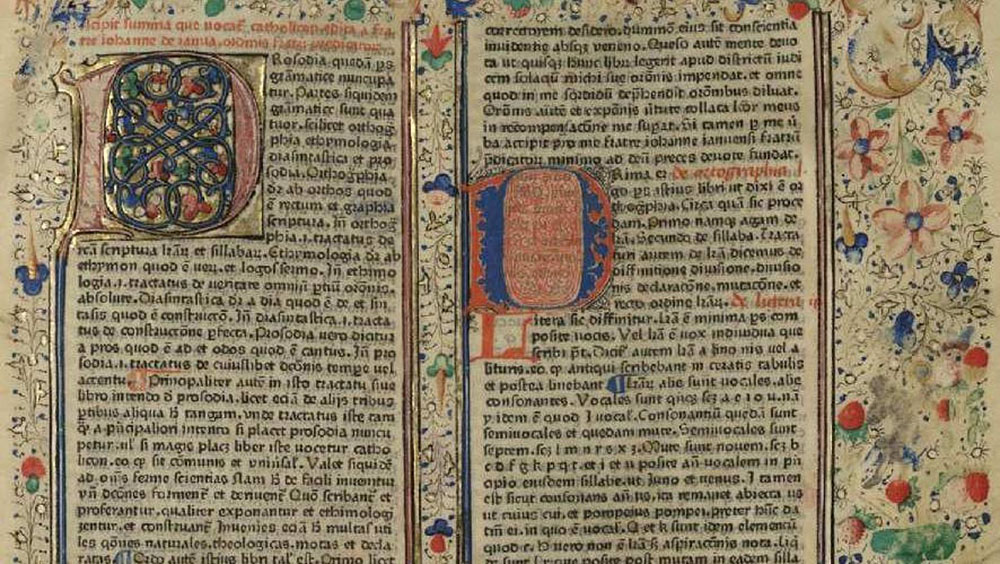 Incipit summa que vocat᷑ catholicon, edita a fra
tre iohanne de ianua, ordinis fratrum predicatorum
Prosodia quedā ps
grāmatice nuncupa
tur. Partes siquidem
grāmatice sunt qua
tuor. scilicet orthog
phia ethymologia.
diasintastica et pro
sodia. Orthogphia
dr̄ ab orthos quod
ē rectum et graphia
scriptura. Jn orthog
phia .i. tractatus de
scriptura lr̄aꝝ et sillabaꝝ. Ethymologia dr̄ ab
ethymon quod ē veꝝ. et logos sermo. Jn ethimo
logia .i. tractatus de veritate omniū ptiū oronis.
absolute. Diasintastica dr̄ a dia quod ē de et sin
tasis quod ē constructio. Jn diasintastica .i. tracta
tus de constructone pfecta. Prosodia vero dicitur
a pros quod ē ad et odos quod ē cantus. Jn pro
sodia .i. tractatus de cuiuslibet dcōnis tempe vel
accentu. Principaliter autē in isto tractatu siue
libro intendo d̄ prosodia. licet eciā de alijs tribus
ptibus aliqua tangam. vnde tractatus iste tam
a pncipaliori intenta si placet prosodia nuncu
petur. ul̓ si magis placz liber iste vocetur catho
licon. eo ꝙ sit cōmunis et vniūsal̓. Valet siquidē
ad om̄s ferme sciencias de facili inuenitur
vn̄ dcōnes forment᷑ et deriuent᷑ Quō scribant᷑ et
proferantur. qualiter exponantur et ethimologi
zentur. et construant᷑ Jnuenies eciā multas uti
les qōnes naturales. theologicas. motas et decla
ratas Ordo autē istius libri tal̓ est. Primo licet
correctorem desidero. dummō eius sit consciencia
inuidentie absqꝫ veneno. Queso autē mente deuo
ta ut quisqꝫ hunc libꝝ legerit apud districtū iudi
cem solaciū michi sue oronis impendat. et omne
quod in me sordidū dephendit oronibus diluat.
Oronis autē et exponis ūtute collata lr̄or meus
in recompensacōne me supat. Si tamen p me
ba accipit pro me fratre iohanne ianuensi fratrū
pdicatoꝝ minimo ad deū preces deuote fundat.
Prima de ortographia
go ps istius libri ut dixi ē or
thogphia. Circa quā sic proce
dam. Primo namqꝫ agam de
lr̄ā. Secundo de sillaba. Tracta
tum autem de lr̄ā dicemus de
diffinitione diuisione. diuisio
nis declaracōne. mutacōne. et
recto ordine lr̄aꝝ. de littera
Litera sic diffinitur. Lr̄ā ē minima ps com
posite vocis. Vel lr̄ā ē vox indiuidua que
scribi pt̄. Dicit᷑ autem lr̄ā a lino nis vel a
lituris. eo ꝙ antiqui scribebant in ceratis tabulis
et postea linebant lr̄aꝝ alie sunt vocales. alie
consonantes. Vocales sunt qnqꝫ scz a e i o u. nā
y idem ē quod i vocal. Consonantiū quedā sunt
semiuocales et quedam mute. Semiuocales sunt
septem. scz l m n r s x z. Mute sunt nouem. scz b
c d f g k p q t. et i et u posite an̄ vocalem in pn
cipio eiusdem sillabe. ut. Juno et uenus. J tamen
est sicut consonans an̄ us, ita remanet abiecta us
ut cuius cui. et pompeius pompei. preter huic da
tm̄ ei. in quo ē vocal. Q et k sunt idem elementū
quod c. H vero non ē lr̄ā sꝫ aspiracōnis nota. licꝫ